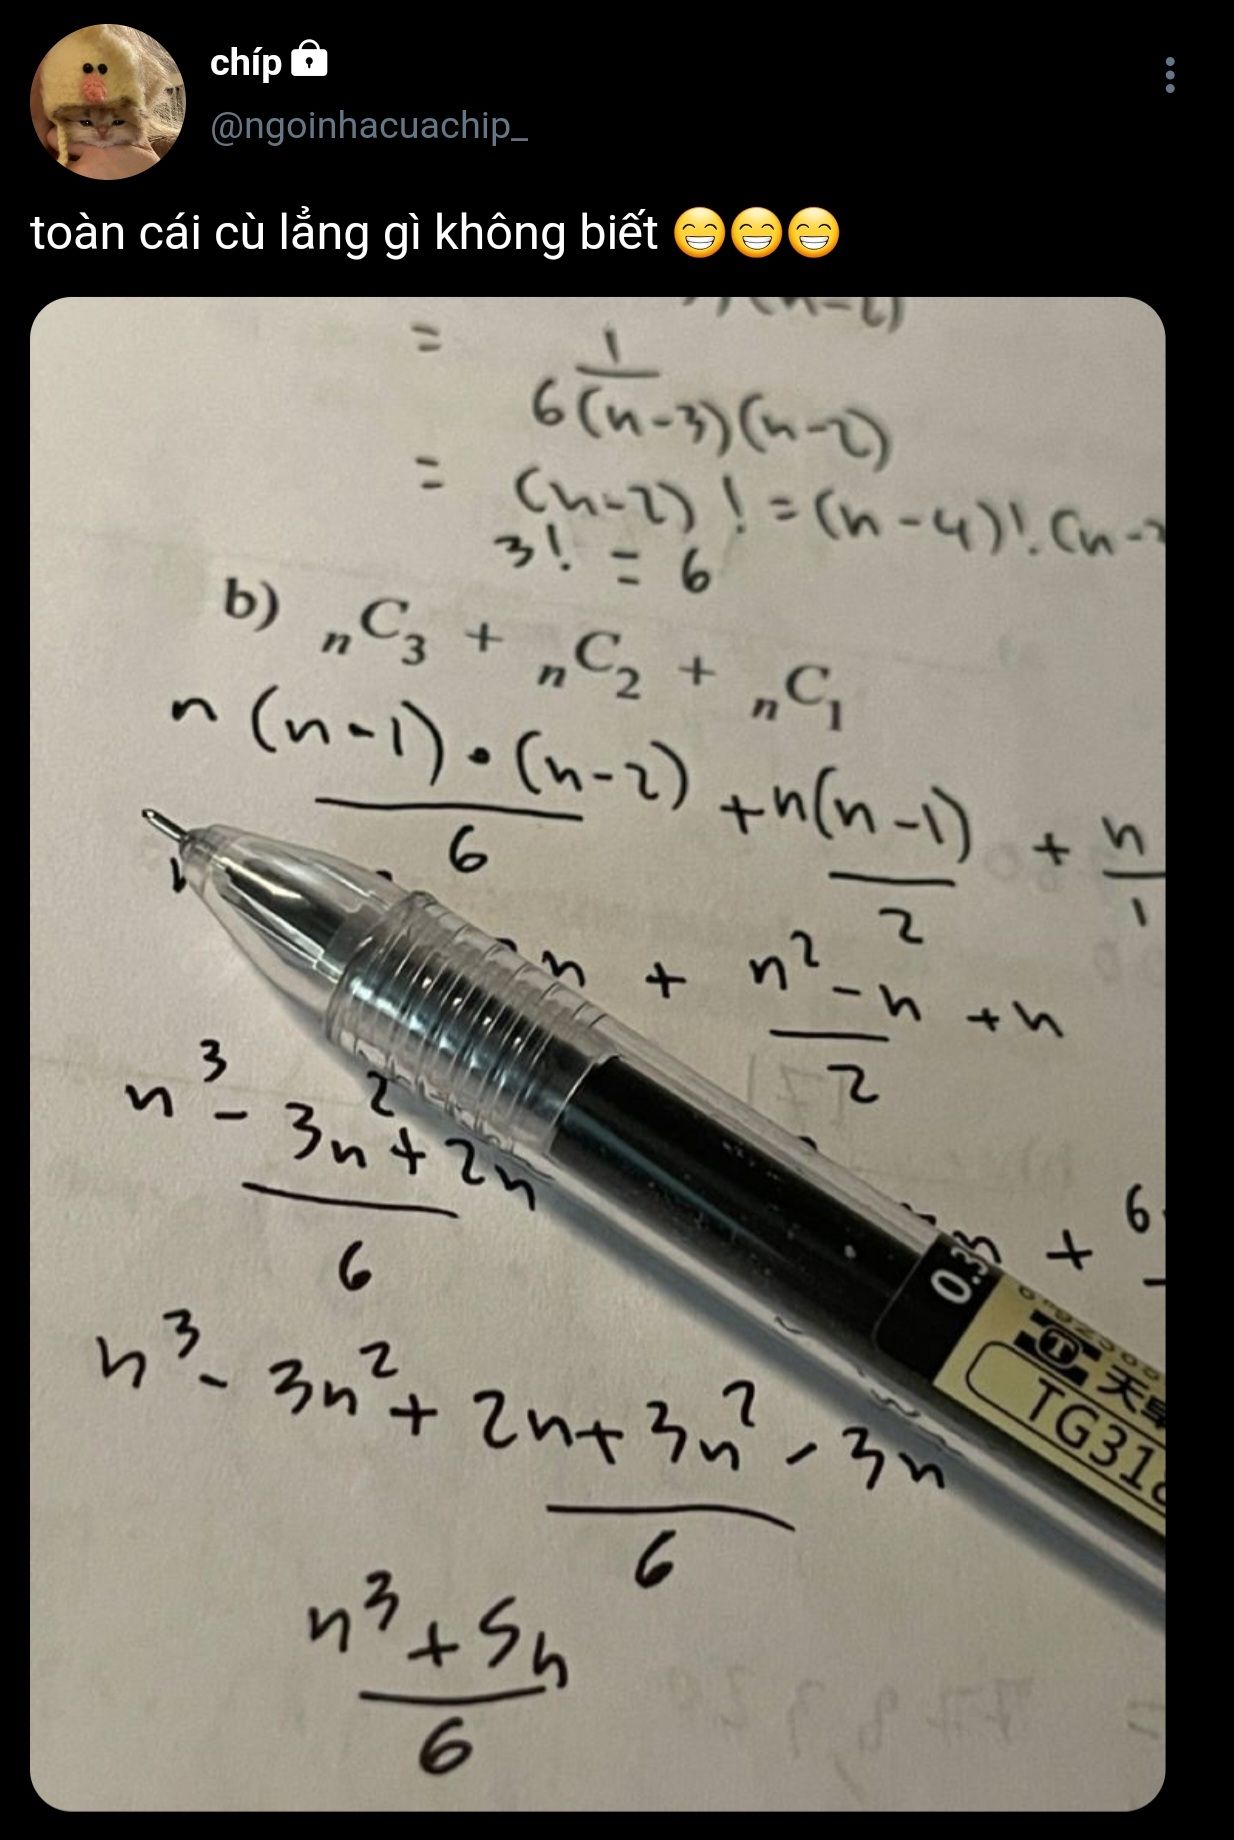 chíp
@ngoinhacuachip_
toàn cái cù lẳng gì không biết 😁😁😁
= 1
6(n-3)(n-2)
= (n-2)! = (n-4)!.(n-
3! = 6
b) nC3 + nC2 + nC1
n(n-1)•(n-2) + n(n-1) + n
6 2 1
n + n² - n + n
2
n³ - 3n² + 2n + 6
6
n³ - 3n² + 2n + 3n² - 3n
6
n³ + 5n
6
0.35
TG318